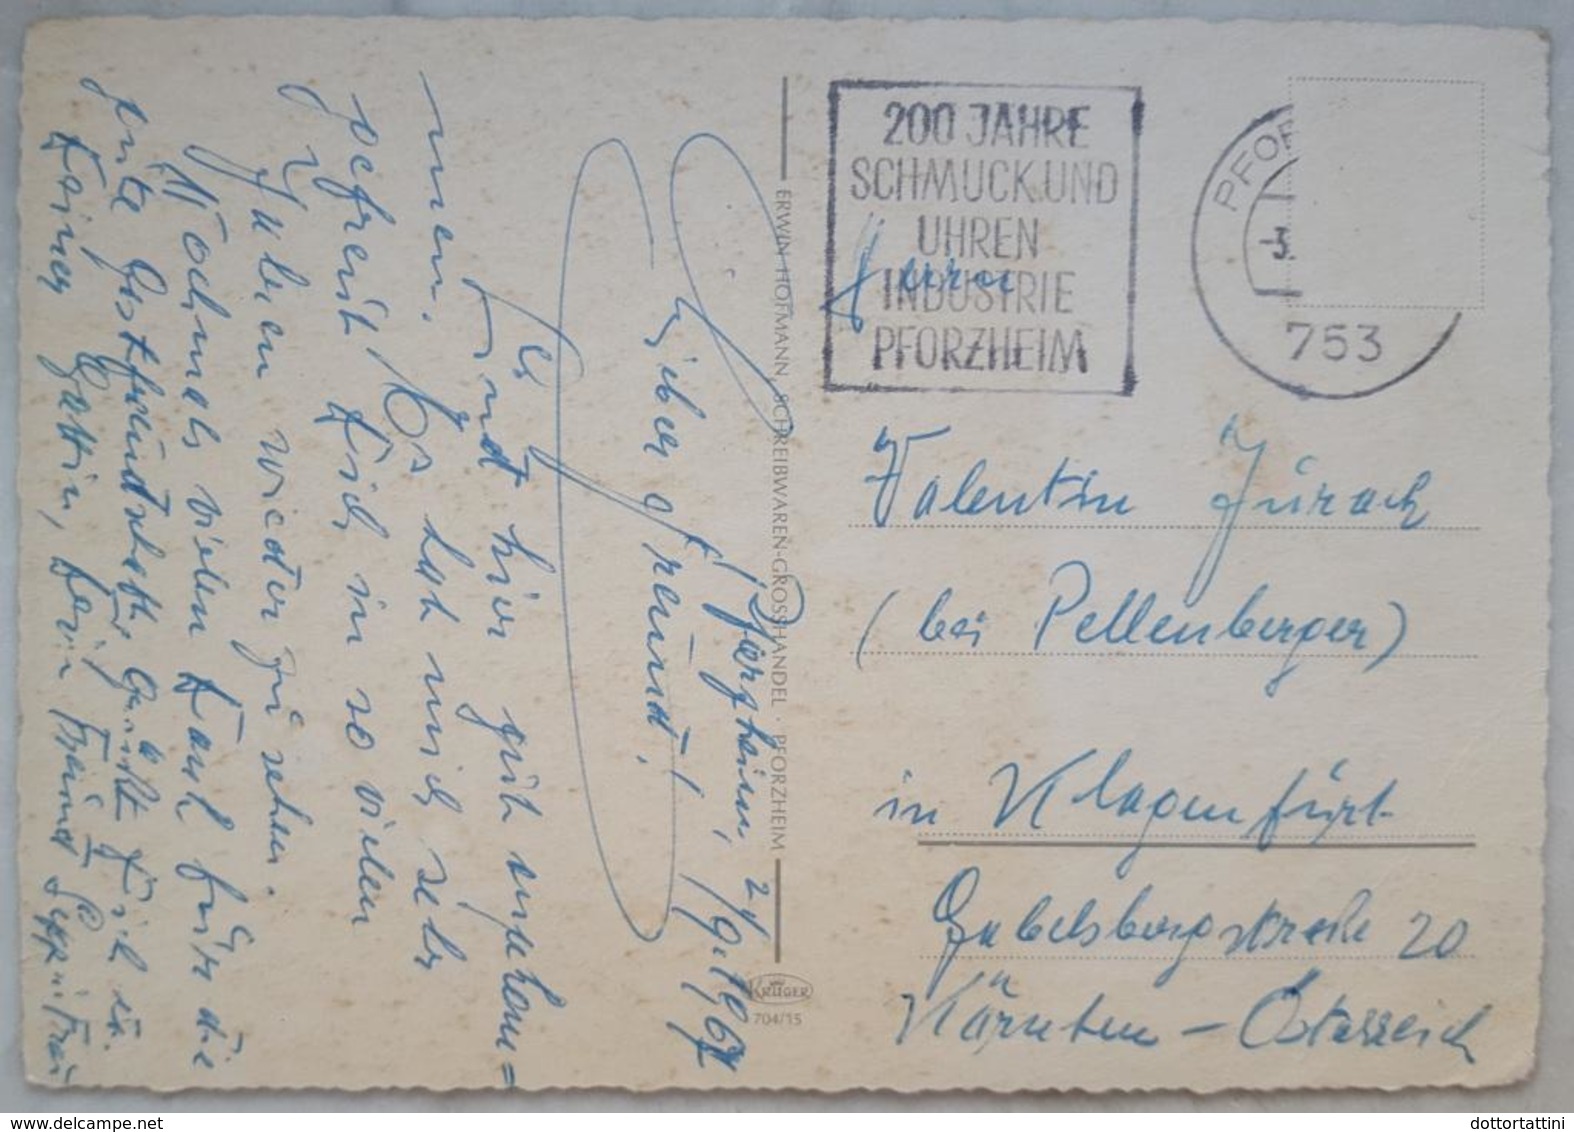 Pforzheim, 2./9.1967
Lieber Freund!
Sind hier gut angekom=
men. Es hat mich sehr
gefreut Dich in so vielen
Jahren wieder zu sehen.
Nochmals vielen Dank für die
gute Gastfreundschaft Dich u.
Deiner Gattin, Dein Freund
ERWIN HOFMANN, SCHREIBWAREN-GROSSHANDEL · PFORZHEIM
KRÜGER
704/15
200 JAHRE
SCHMUCK UND
UHREN
INDUSTRIE
PFORZHEIM
PFOR
-3.
753
Herrn
Valentin Jurach
(bei Pellenberger)
in Klagenfurt
Gabelsbergstraße 20
Kärnten - Österreich
dottortattini